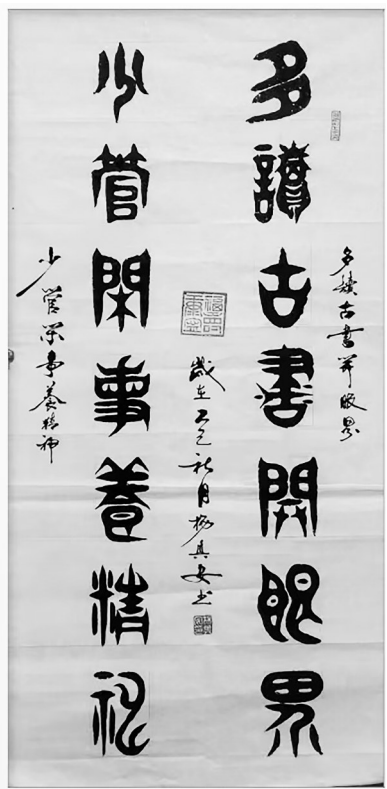 多讀古書開眼界
多讀古書開眼界
歲在乙巳秋月楊安书
少管閑事養精神
少管閑事養精神